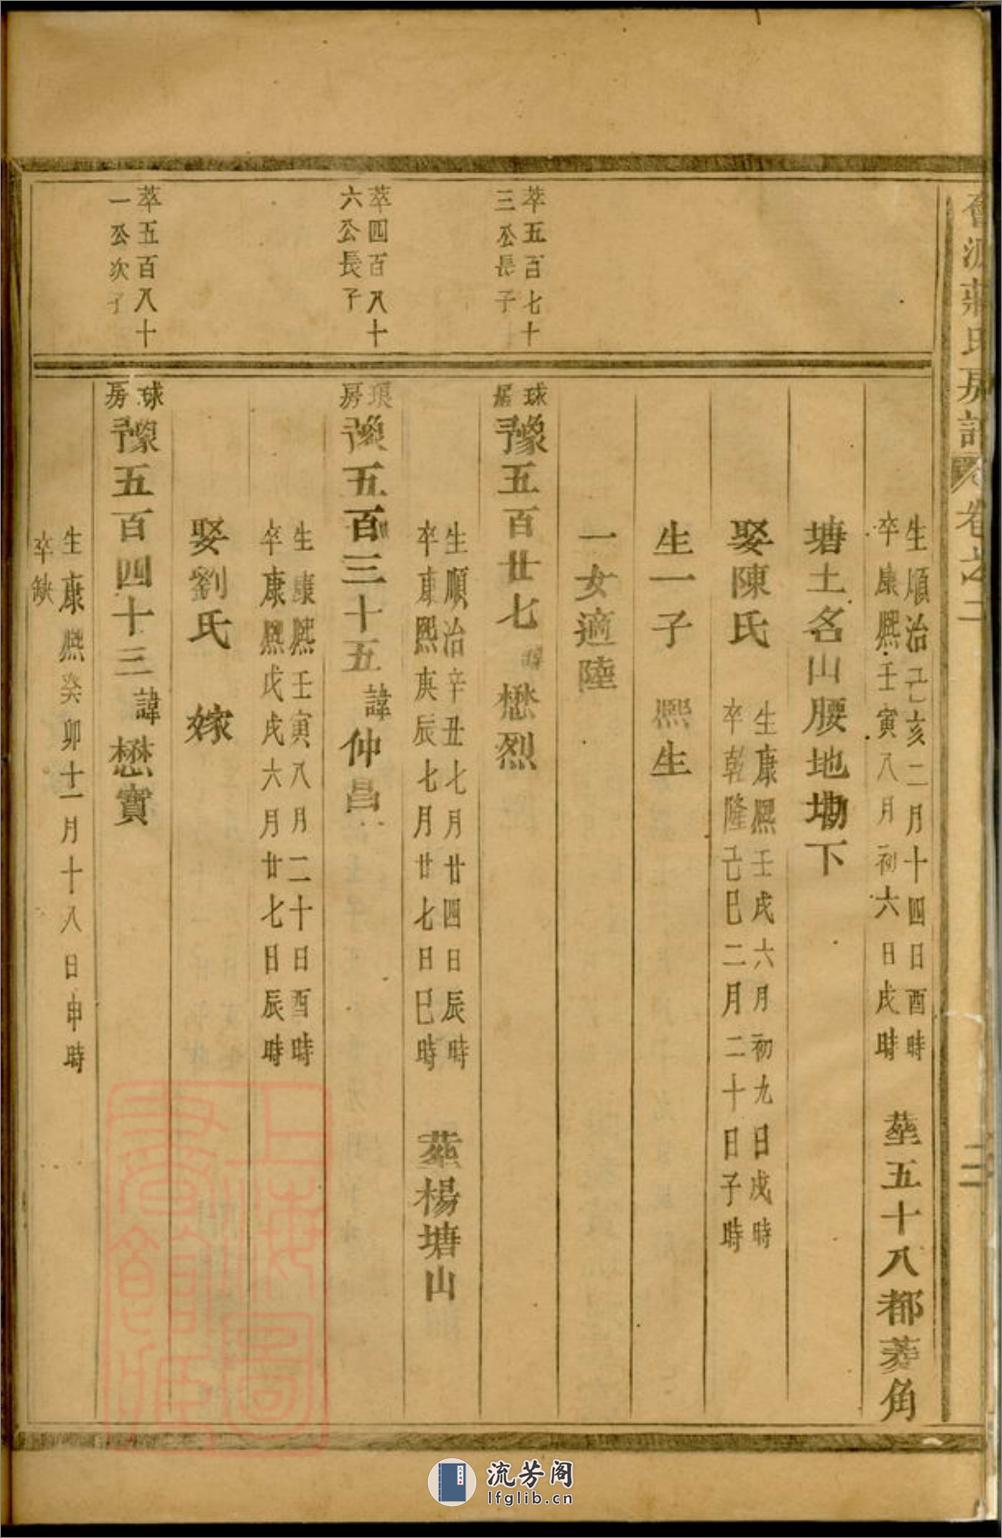 會源莊氏房譜 卷之二
三
生順治己亥二月十四日酉時
卒康熙壬寅八月初六日戌時
塟五十八都菱角
塘土名山腰地塸下
娶陳氏
生康熙壬戌六月初九日戌時
卒乾隆己巳二月二十日子時
生一子 熙生
一女適陸
萃五百七十
三公長子
球房
豫五百廿七 諱 懋烈
生順治辛丑七月廿四日辰時
卒康熙庚辰七月廿七日巳時
塟楊塘山
萃四百八十
六公長子
琅房
豫五百三十五 諱 仲昌
生康熙壬寅八月二十日酉時
卒康熙戊戌六月廿七日辰時
娶劉氏 嫁
萃五百八十
一公次子
球房
豫五百四十三 諱 懋實
生康熙癸卯十一月十八日申時
卒缺
上海圖書館藏
流芳阁
lfglib.cn